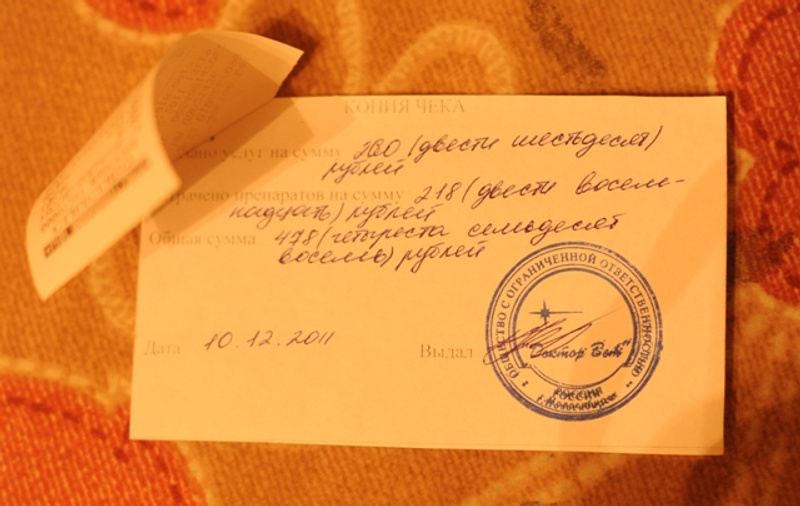 КОПИЯ ЧЕКА
услуг на сумму 260 (двести шестьдесят)
рублей
препаратов на сумму 218 (двести восем-
надцать) рублей
Общая сумма 478 (четыреста семьдесят
восемь) рублей
Дата 10.12.2011
Выдал
ОБЩЕСТВО С ОГРАНИЧЕННОЙ ОТВЕТСТВЕННОСТЬЮ
"Доктор Вет"
РОССИЯ